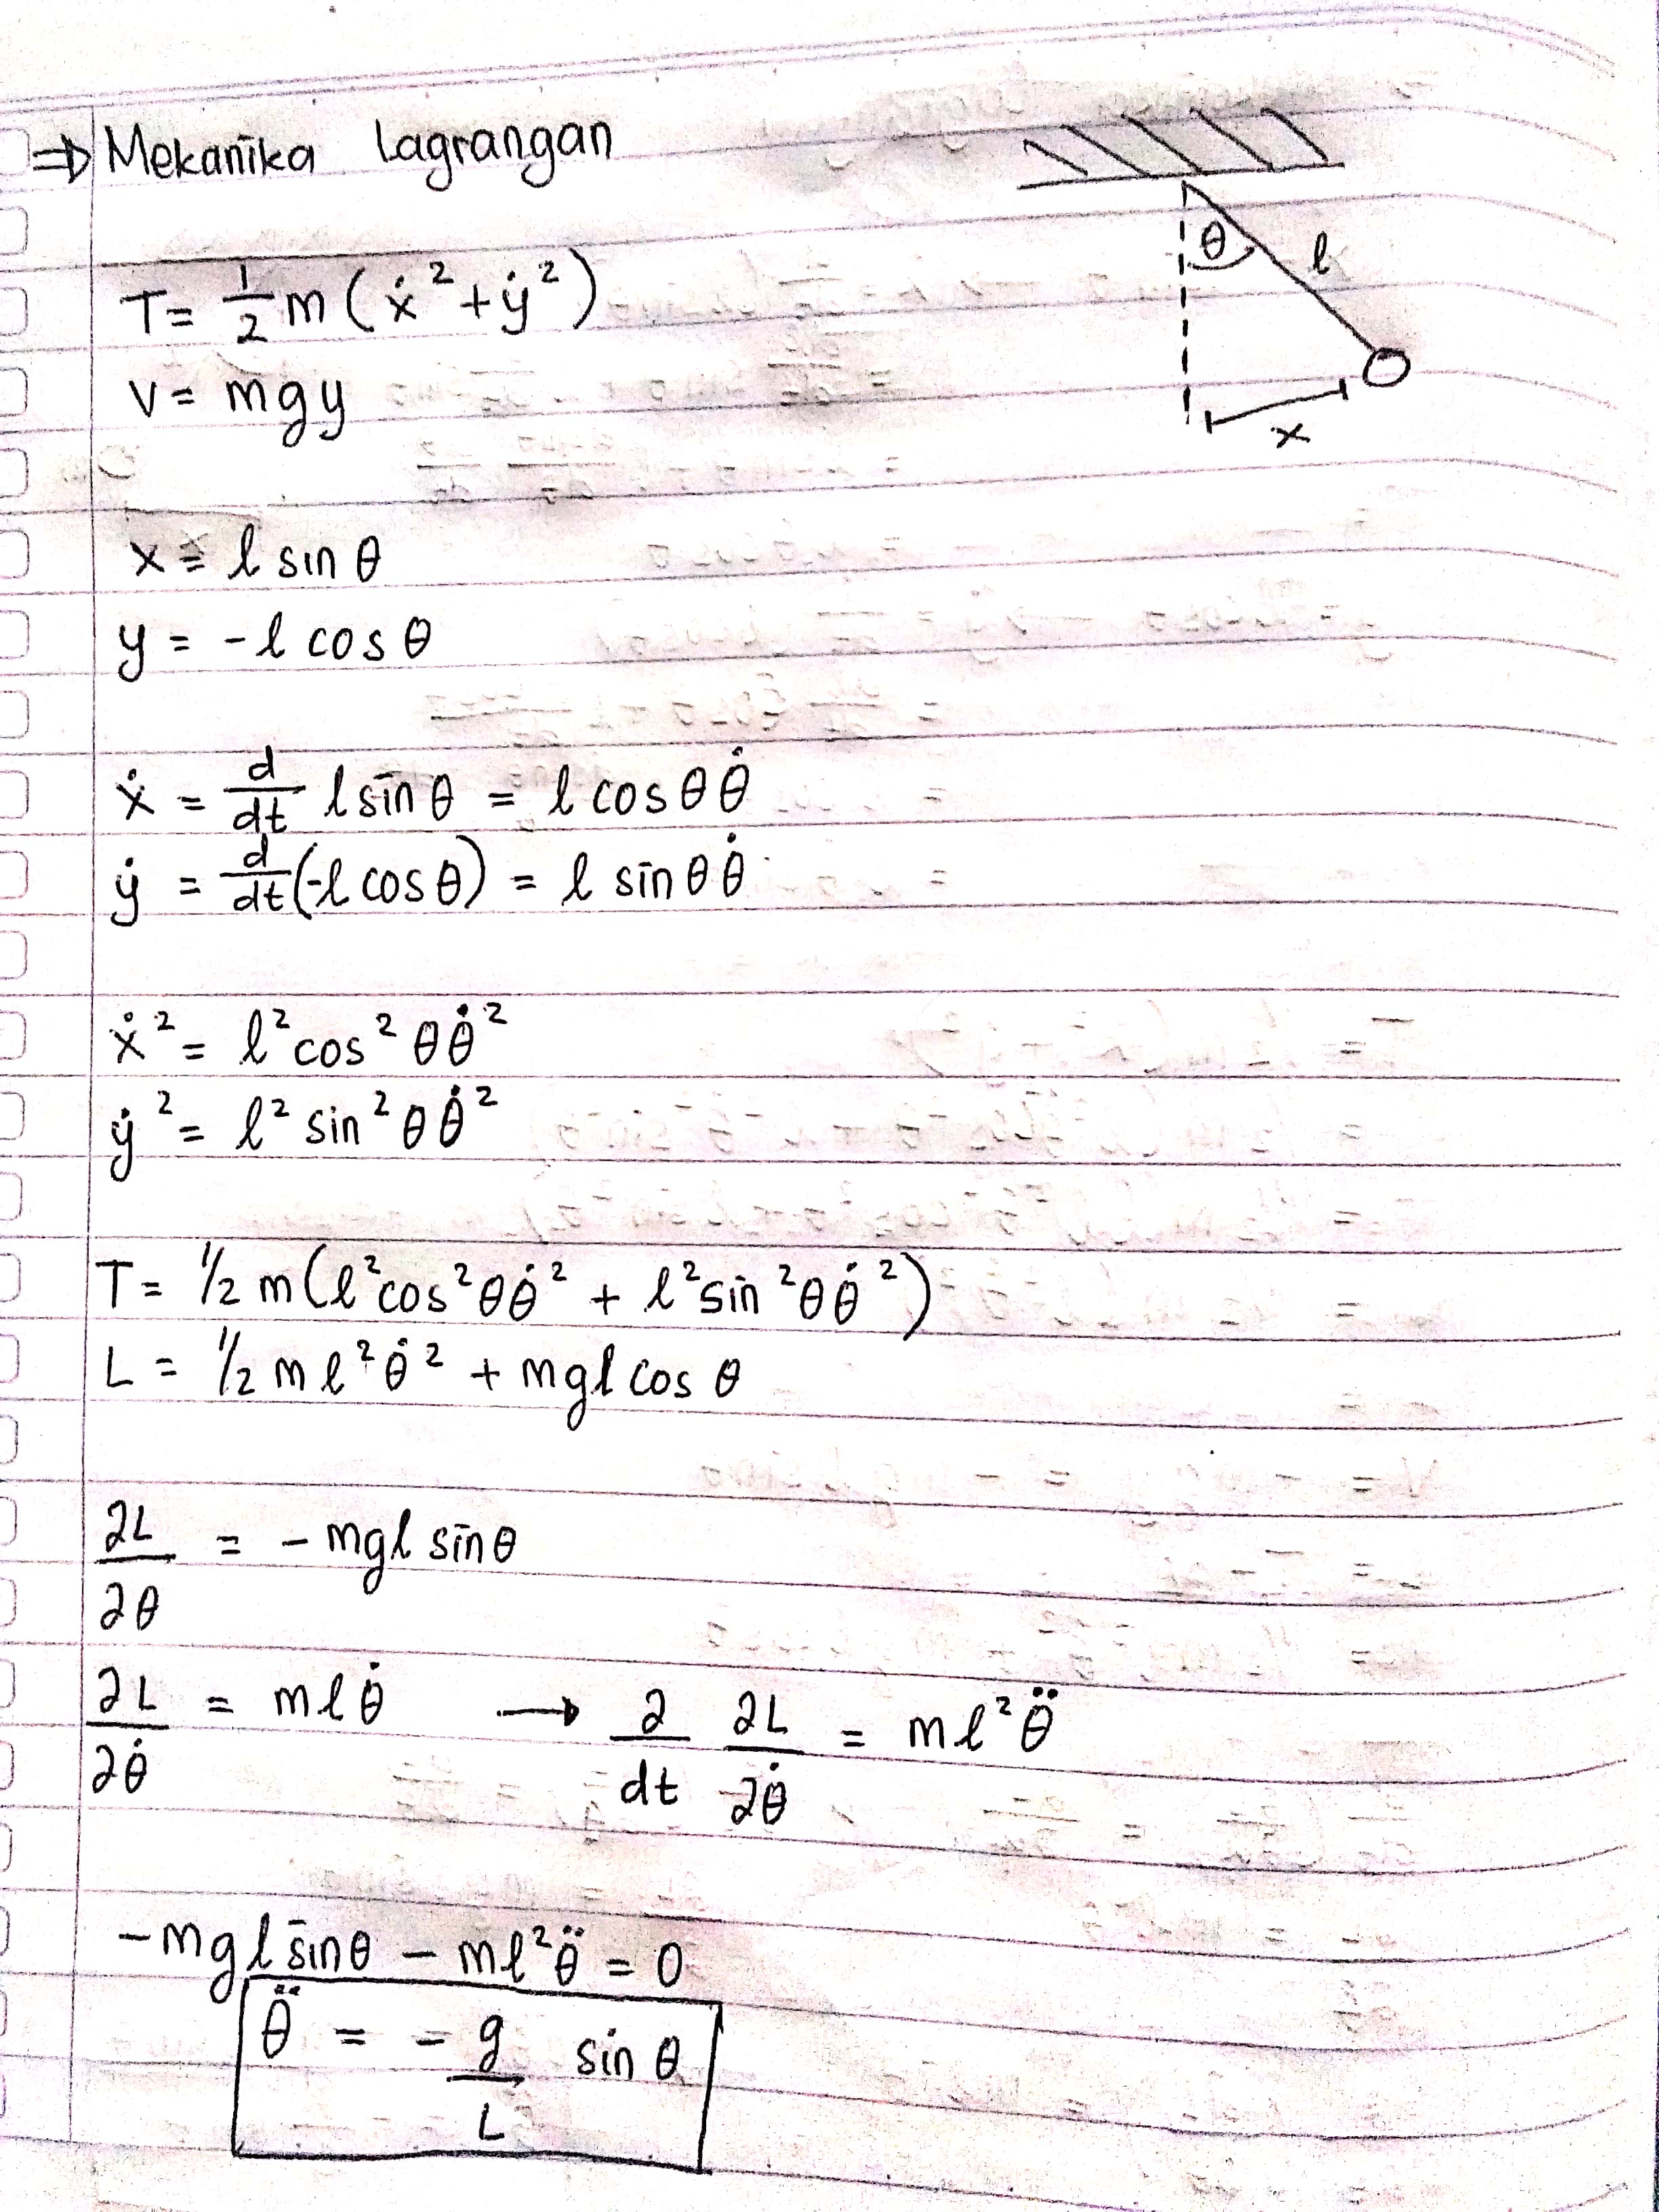 ⇒ Mekanika Lagrangan
θ
l
x
T = 1/2 m (ẋ² + ẏ²)
V = mgy
x = l sin θ
y = -l cos θ
ẋ = d/dt l sin θ = l cos θ θ̇
ẏ = d/dt (-l cos θ) = l sin θ θ̇
ẋ² = l² cos² θ θ̇²
ẏ² = l² sin² θ θ̇²
T = 1/2 m (l² cos² θ θ̇² + l² sin² θ θ̇²)
L = 1/2 m l² θ̇² + mgl cos θ
∂L/∂θ = - mgl sin θ
∂L/∂θ̇ = m l θ̇ → ∂/dt ∂L/∂θ̇ = m l² θ̈
-mgl sin θ - ml² θ̈ = 0
θ̈ = - g/L sin θ